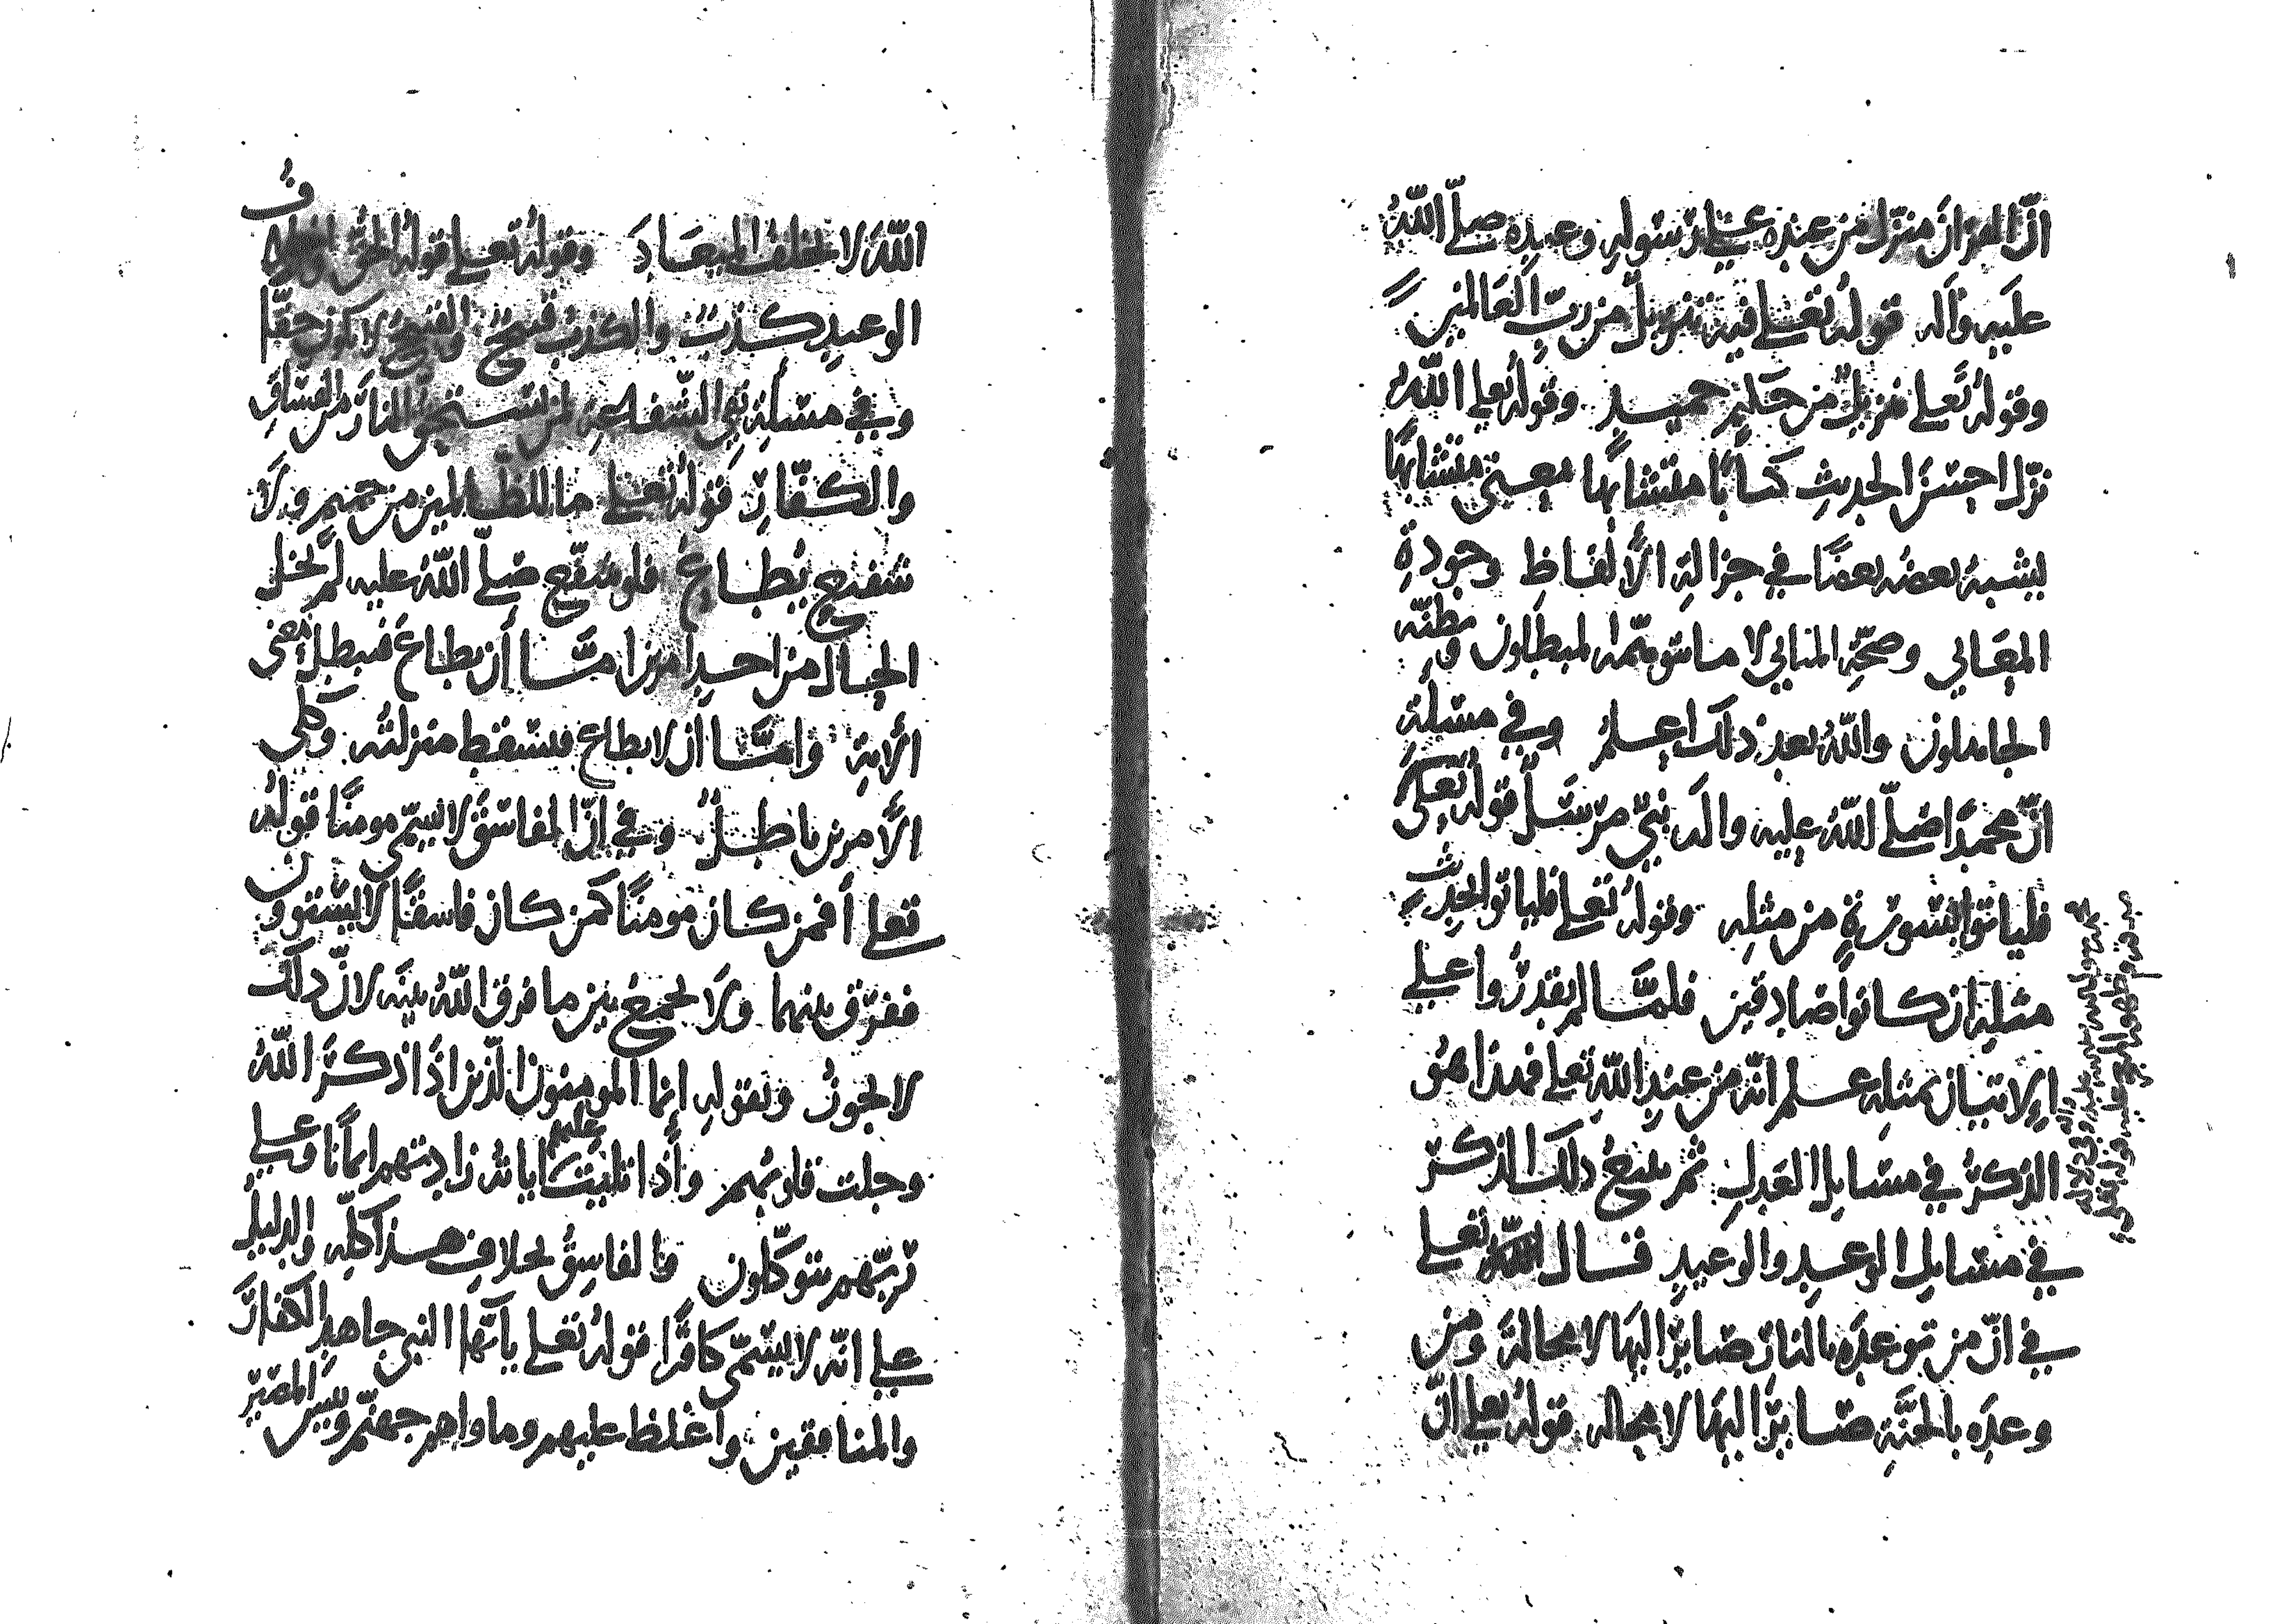 انّ القرآن منزّل من عنده على رسوله وعبده صلّى اللّهُ
عليه وآله قوله تعلى فيه تنزيلٌ من ربّ العالمين
وقوله تعلى تنزيلٌ من حكيم حميد وقوله تعلى اللّه
نزّل احسن الحديث كتابًا متشابهًا معنى متشابهًا
يشبهُ بعضه بعضًا في جزالة الألفاظ وجودة
المعاني وصحّة المباني لا ما توهّمه المبطلون وظنّه
الجاهلون واللّهُ بعد ذلك اعلم وفي مسئلة
انّ محمدًا صلّى اللّه عليه وآله نبيّ مرسل قوله تعلى
فلياتوا بسورةٍ من مثله وقوله تعلى فلياتوا بحديث
مثله ان كانوا صادقين فلمّا لم يقدروا على
الاتيان بمثله علم انّه من عند اللّه تعلى فهذا هو
الذكرُ في مسايل العدل ثم يتبع ذلك الذكر
في مسايل الوعد والوعيد قال اللّه تعلى
في انّ من توعده بالنار صايرٌ اليها لا محالة ومن
وعده بالجنّة صايرٌ اليها لا محاله قوله تعلى انّ
اللّهَ لا يخلف الميعادَ وقوله تعلى قوله الحقّ
الوعيد كذبٌ والكذب قبيحٌ والقبيح لا يكون حقًّا
وفي مسئلة نفي الشفاعة لمن يستحق النار من الفساق
والكفّار قوله تعلى ما للظالمين من حميم ولا
شفيع يُطاع فلو شفّع صلّى اللّهُ عليه لم يخل
الحال من احد امرين امّا أن يطاع فيبطل معنى
الآية وامّا ان لا يطاع فيسقط منزلته وكلى
الأمرين باطلٌ وفي انّ الفاسق لا يسمّى مومنًا قوله
تعلى أفمن كان مومنًا كمن كان فاسقًا لا يستوون
ففرّق بينهما ولا يجمع بين ما فرق اللّهُ بينه لانّ ذلك
لا يجوز ولقوله انما المومنون الّذين اذا ذكر اللّهُ
وجلت قلوبهم وأذا تليت عليهم آياته زادتهم ايمانًا وعلى
ربّهم يتوكّلون والفاسقُ بخلاف هذا كلّه والدليل
على انّه لا يسمّى كافرًا قوله تعلى يآيّها النبي جاهد الكفار
والمنافقين واغلظ عليهم وماواهم جهنّم وبيس المصير